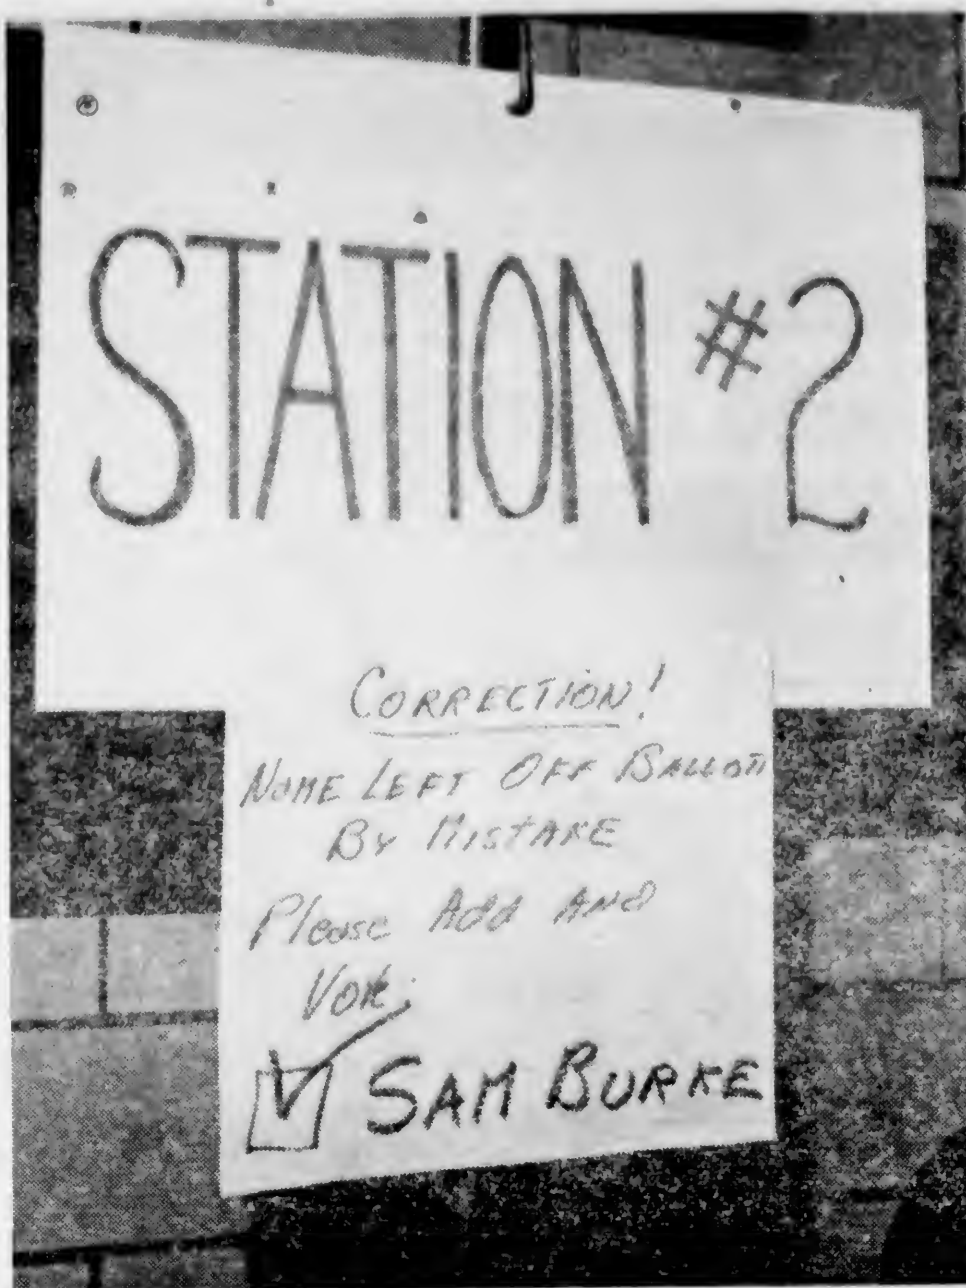 STATION #2
CORRECTION!
NAME LEFT OFF BALLOT
BY MISTAKE
Please Add AND
Vote:
SAM BURKE